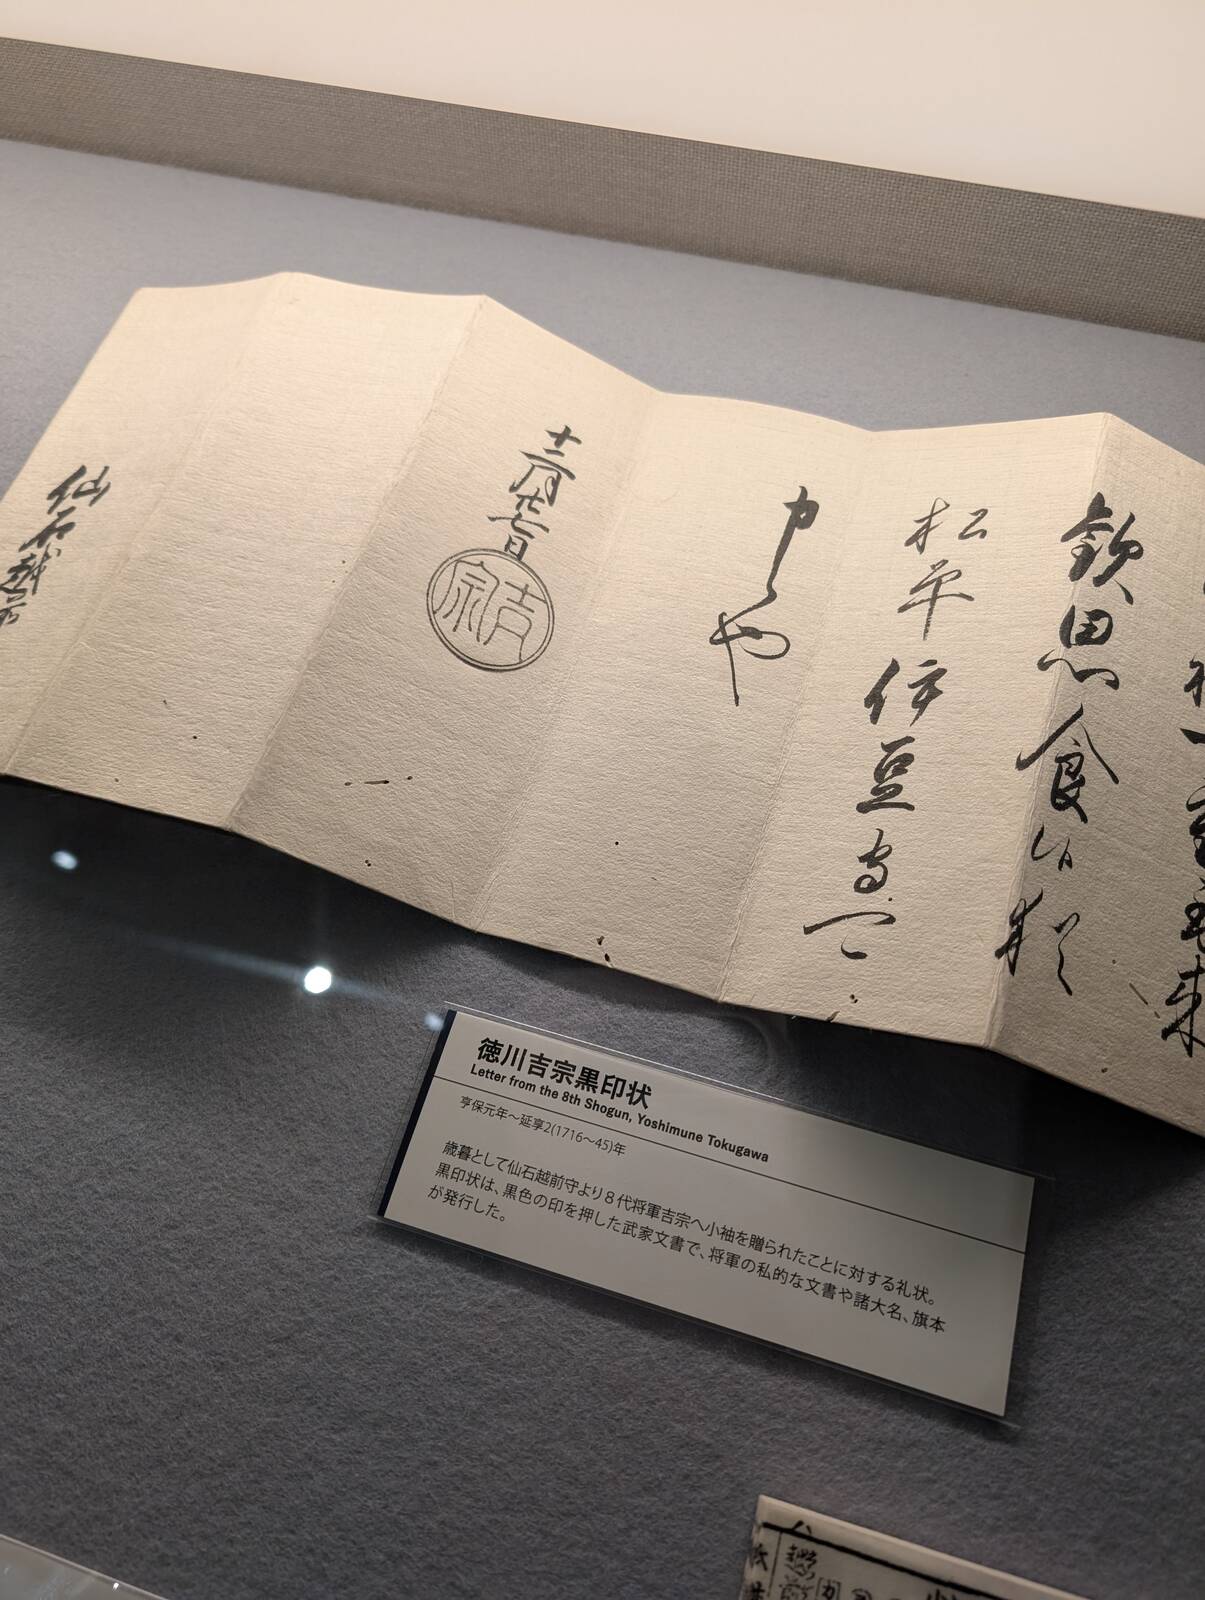 欽思食候猶
松平伊豆守可
申也
十二月廿七日
吉宗
仙石越前
徳川吉宗黒印状
Letter from the 8th Shogun, Yoshimune Tokugawa
享保元年～延享2(1716～45)年
歳暮として仙石越前守より８代将軍吉宗へ小袖を贈られたことに対する礼状。
黒印状は、黒色の印を押した武家文書で、将軍の私的な文書や諸大名、旗本
が発行した。